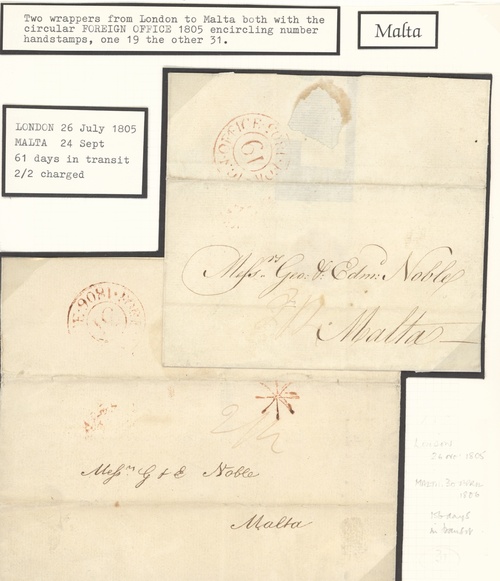 Two wrappers from London to Malta both with the
circular FOREIGN OFFICE 1805 encircling number
handstamps, one 19 the other 31.
Malta
LONDON 26 July 1805
MALTA 24 Sept
61 days in transit
2/2 charged
OFFICE
19
Messrs Geo: & Edmd: Noble
Malta
1806
2/2
Messrs G & E Noble
Malta
London
1805
1806
days
in transit